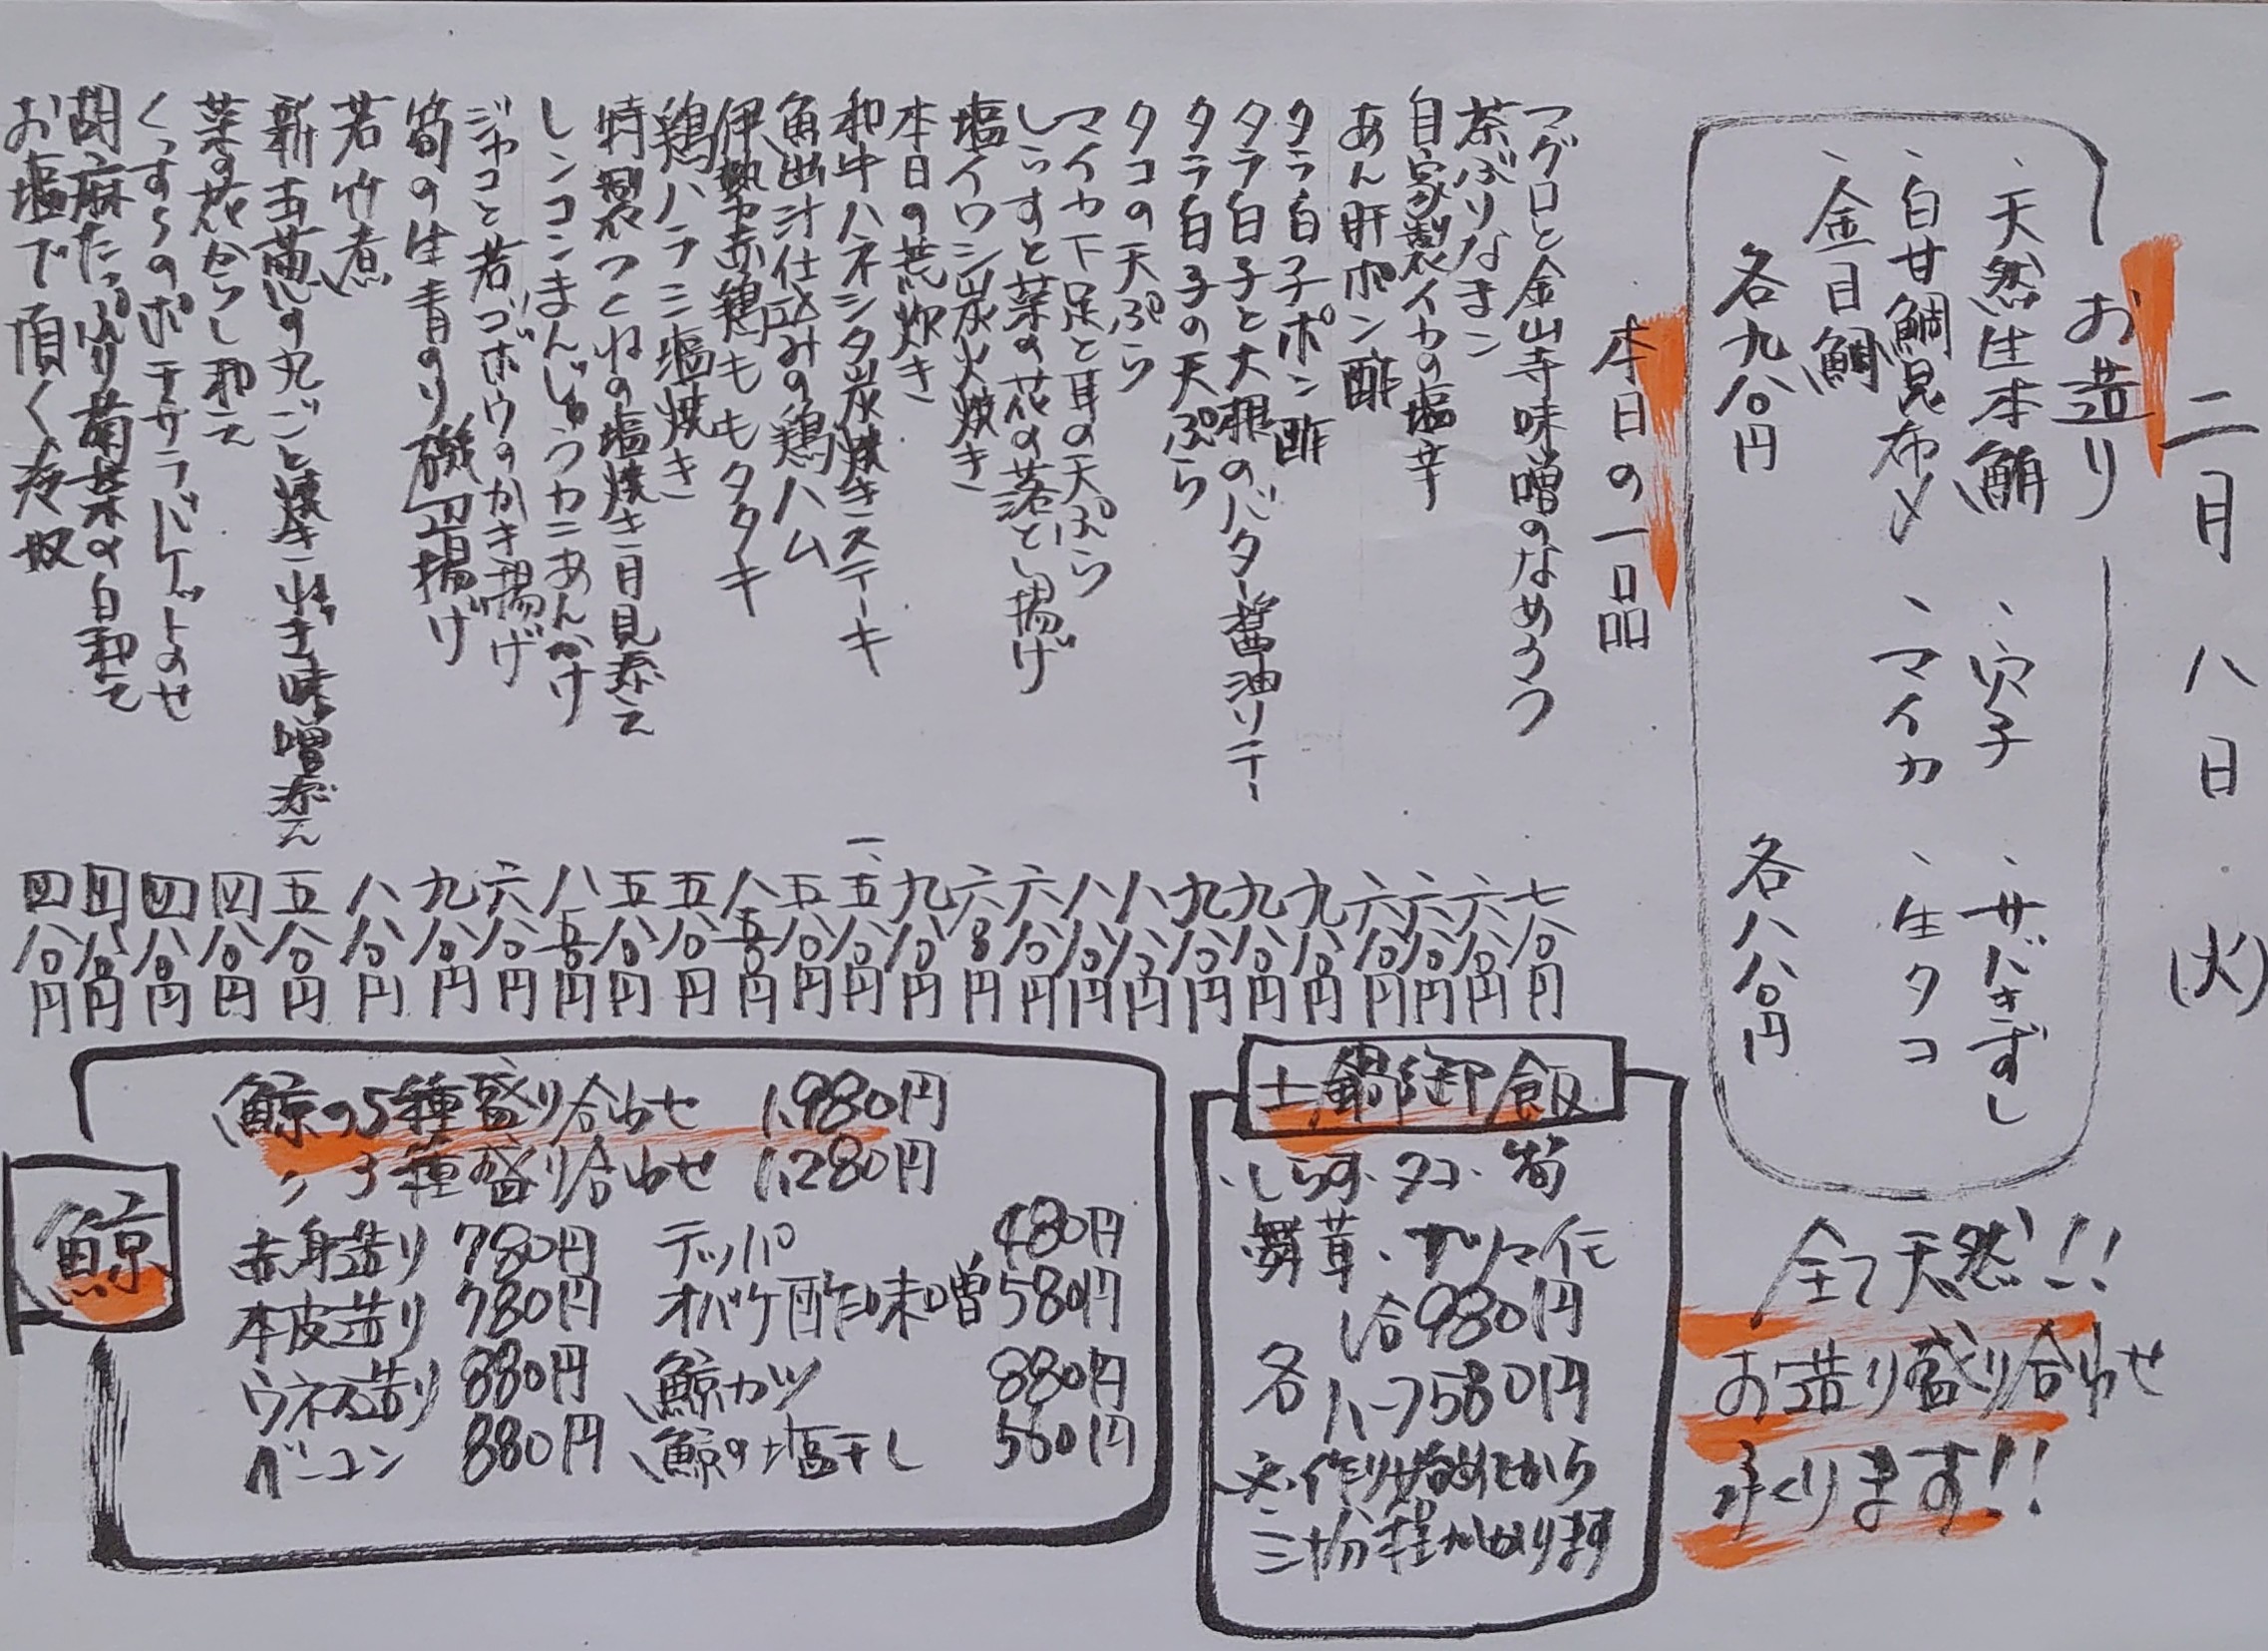 二月八日(火)
お造り
、天然生本鮪
、穴子
、サバきずし
、白甘鯛昆布〆
、マイカ
、生タコ
、金目鯛
各九八〇円
各八八〇円
全て天然!!
お造り盛り合わせ
承ります!!
本日の一品
マグロと金山寺味噌のなめろう 七八〇円
茶ぶりなまこ 六八〇円
自家製イカの塩辛 六八〇円
あん肝ポン酢 六八〇円
タラ白子ポン酢 九八〇円
タラ白子と大根のバター醤油ソテー 九八〇円
タラ白子の天ぷら 九八〇円
タコの天ぷら 八八〇円
マイカ下足と耳の天ぷら 八八〇円
しらすと菜の花の落とし揚げ 六八〇円
塩イワシ炭火焼き 六八〇円
本日の荒炊き 九八〇円
和牛ハネシタ炭焼きステーキ 一、五八〇円
魚出汁仕込みの鶏ハム 五八〇円
伊勢赤鶏ももタタキ 八五〇円
鶏ハラミ塩焼き 五八〇円
特製つくねの塩焼き月見添え 五八〇円
レンコンまんじゅうカニあんかけ 八五〇円
ジャコと若ゴボウのかき揚げ 六八〇円
筍の生青のり磯辺揚げ 九八〇円
若竹煮 八八〇円
新玉葱の丸ごと焼きねぎ味噌添え 五八〇円
菜の花からし和え 四八〇円
くんすらのポテサラバケットのせ 四八〇円
胡麻たっぷり菊菜の白和え 四八〇円
お塩で頂く冷奴 四八〇円
土鍋御飯
・しらす・タコ・筍
・舞茸・サツマイモ
各
1合980円
ハーフ580円
※作り始めてから
三十分程かかります
鯨
鯨の5種盛り合わせ 1,980円
〃 3種盛り合わせ 1,280円
赤身造り 780円 テッパ 480円
本皮造り 780円 オバケ酢味噌 580円
ウネス造り 880円 鯨カツ 880円
ベーコン 880円 鯨の塩干し 560円